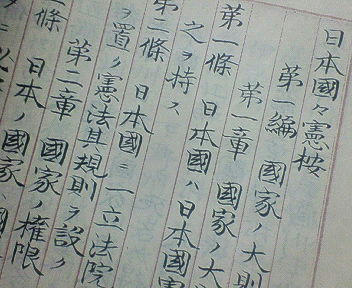 日本國々憲桉
第一編 國家ノ大則
第一章 國家ノ大
第一條 日本國ハ日本國
之ヲ持ス
第二條 日本國ニ一立法院
ヲ置ク憲法其規則ヲ設ク
第二章 國家ノ權限
條 日本ノ國家